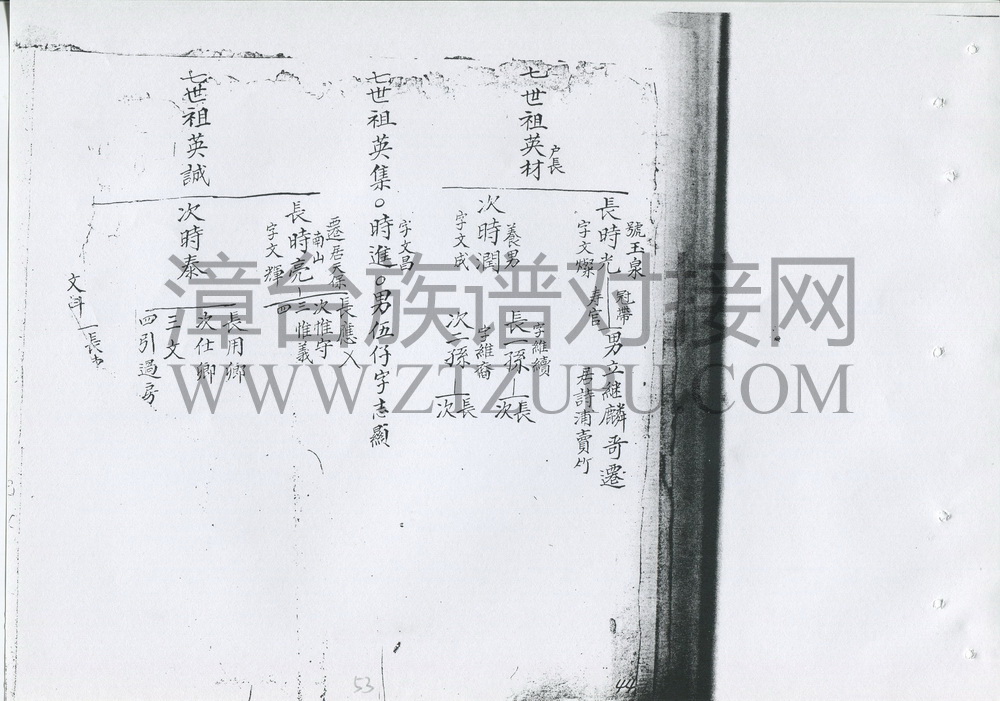 七世祖英材
户長
長時光
號玉泉
字文燦
冠帶
壽官
男立継麟哥遷
居詩浦賣竹
次時潤
養男
字文成
長一孫
字維續
長
次
次二孫
字維裔
長
次
七世祖英集○時進○男伍仔字志顯
字文昌
七世祖英誠
長時亮
遷居天保
南山
字文輝
長應
次惟守
三惟義
四
次時泰
長用卿
次仕卿
三文
四引過房
長
53
44
漳台族谱对接网
WWW.ZTZUPU.COM